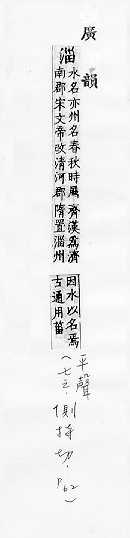 廣韻
淄
水名亦州名春秋時屬齊漢爲濟
南郡宋文帝改清河郡隋置淄州
因水以名焉
古通用菑
平聲
(七之.側持切.P62)